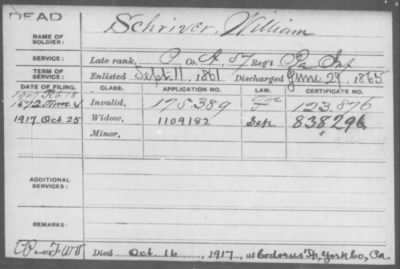 DEAD
NAME OF SOLDIER: Schriver, William
SERVICE: Late rank, P Co. A, 87 Reg't Pa Inf
TERM OF SERVICE: Enlisted Sept. 11, 1861 Discharged June 29, 1865
DATE OF FILING. CLASS. APPLICATION NO. LAW. CERTIFICATE NO.
1872 June 4 Invalid, 175.389 123.876
1917 Oct 25 Widow, 1109182 838296
Minor,
ADDITIONAL SERVICES:
REMARKS:
Died Oct. 16, 1917, at Codorus Tp, York Co, Pa.